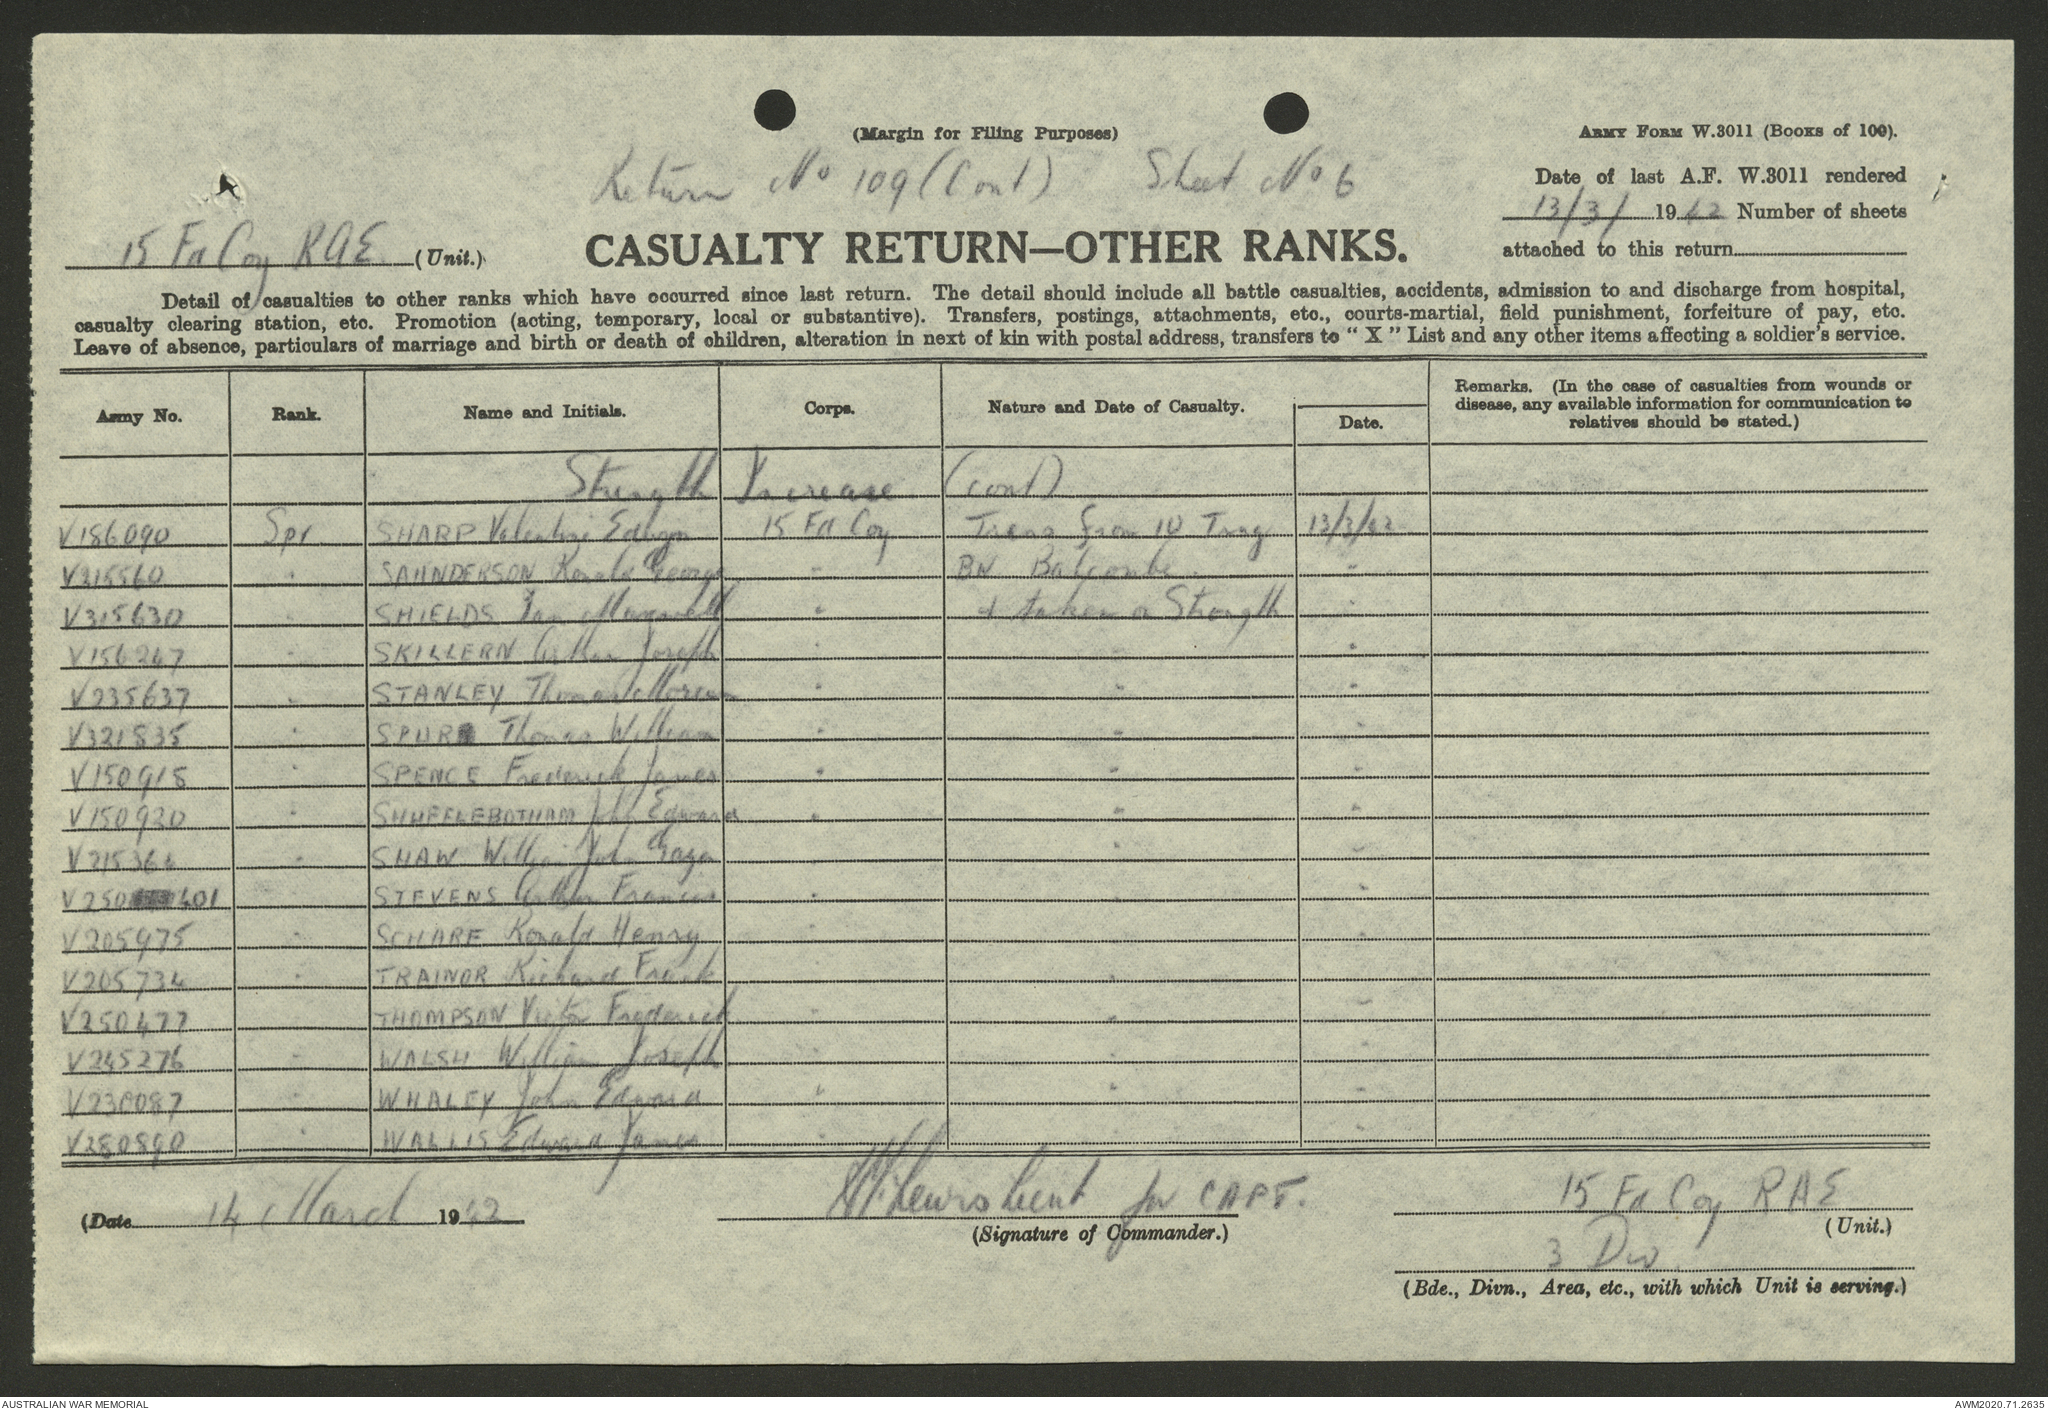 (Margin for Filing Purposes)
ARMY FORM W.3011 (Books of 100).
Return No 109 (Cont) Sheet No 6
Date of last A.F. W.3011 rendered
13/3/ 1942 Number of sheets
attached to this return
15 Fd Coy RAE (Unit.)
CASUALTY RETURN—OTHER RANKS.
Detail of casualties to other ranks which have occurred since last return. The detail should include all battle casualties, accidents, admission to and discharge from hospital,
casualty clearing station, etc. Promotion (acting, temporary, local or substantive). Transfers, postings, attachments, etc., courts-martial, field punishment, forfeiture of pay, etc.
Leave of absence, particulars of marriage and birth or death of children, alteration in next of kin with postal address, transfers to "X" List and any other items affecting a soldier's service.
Army No. Rank. Name and Initials. Corps. Nature and Date of Casualty. Date. Remarks. (In the case of casualties from wounds or
disease, any available information for communication to
relatives should be stated.)
Strength Increase (cont)
V186090 Spr SHARP Valentine Edwyn 15 Fd Coy Trans from 10 Trng 13/3/42
V315560 " SAUNDERSON Ronald George " BN Balcombe "
V315630 " SHIELDS Ian Maxwell " & taken on Strength "
V156247 " SKILLERN Arthur Joseph " " "
V235637 " STANLEY Thomas " " "
V321835 " SPURR Thomas William " " "
V150915 " SPENCE Frederick James " " "
V150920 " SHUFFLEBOTHAM John Edward " " "
V215364 " SHAW William John " " "
V250401 " STEVENS Arthur Francis " " "
V205975 " SCHARF Ronald Henry " " "
V205734 " TRAINOR Richard Frank " " "
V250477 " THOMPSON Victor Frederick " " "
V245276 " WALSH William Joseph " " "
V230087 " WHALEY John Edward " " "
V280890 " WALLIS Edward James " " "
(Date 14 March 1942
Lieut for CAPT.
(Signature of Commander.)
15 Fd Coy RAE
(Unit.)
3 Div
(Bde., Divn., Area, etc., with which Unit is serving.)
AUSTRALIAN WAR MEMORIAL
AWM2020.71.2635